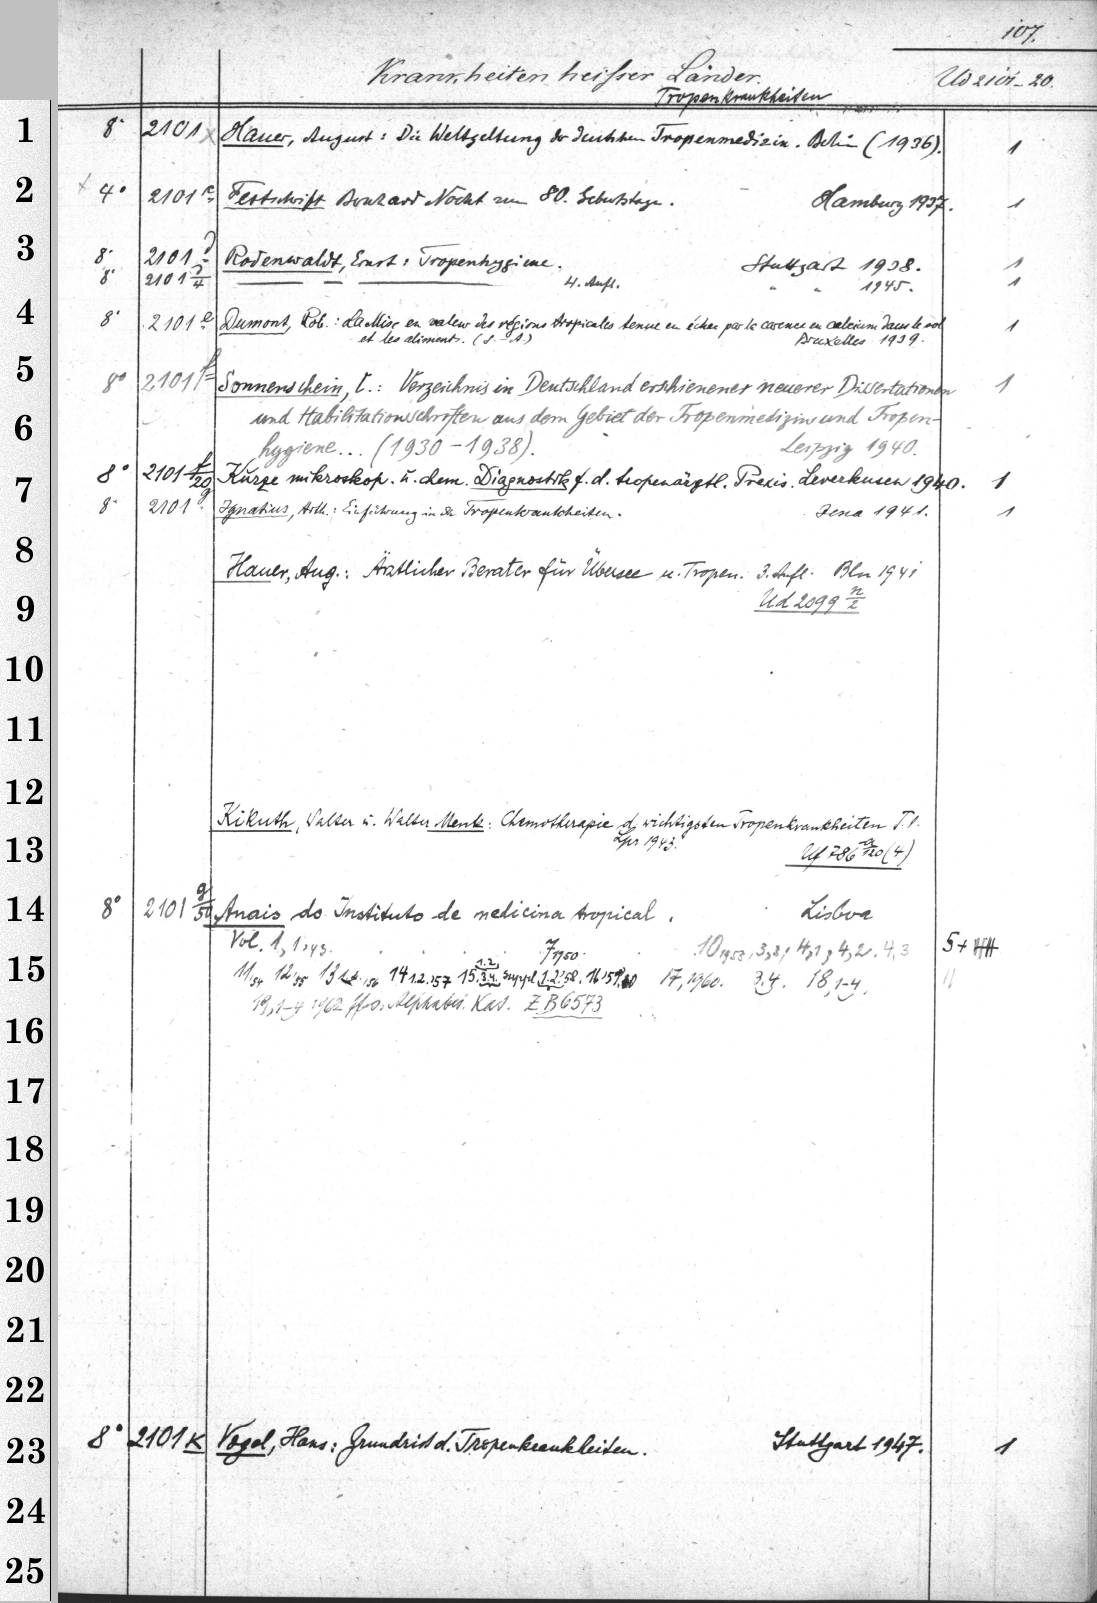 107.
Krankheiten heisser Länder. Ud 2101-20.
Tropenkrankheiten
1 8° 2101 x Hauer, August: Die Weltgeltung der deutschen Tropenmedizin. Berlin (1936). 1
2 4° 2101 c Festschrift Bernhard Nocht zum 80. Geburtstage. Hamburg 1937. 1
3 8° 2101 d Rodenwaldt, Ernst: Tropenhygiene. Stuttgart 1938. 1
8° 2101 d/4 4. Aufl. " " 1945. 1
4 8° 2101 e Dumont, Rob.: La Mise en valeur des régions tropicales tenue en échec par la carence en calcium dans le sol 1
et les aliments. Bruxelles 1939.
5 8° 2101 f Sonnenschein, C.: Verzeichnis in Deutschland erschienener neuerer Dissertationen 1
6 und Habilitationsschriften aus dem Gebiet der Tropenmedizin und Tropen-
hygiene... (1930-1938). Leipzig 1940.
7 8° 2101 f/20 Kurze mikroskop. u. chem. Diagnostik f. d. tropenärztl. Praxis. Leverkusen 1940. 1
8° 2101 g Ignatius, Arth.: Einführung in die Tropenkrankheiten. Jena 1941. 1
8 Hauer, Aug.: Ärztlicher Berater für Übersee u. Tropen. 3. Aufl. Bln 1941
9 Ud 2099 n/2
10
11
12
Kikuth, Walter u. Walter Menk: Chemotherapie d. wichtigsten Tropenkrankheiten T.1.
13 Lpz 1943. Uf 786 a/120 (4)
14 8° 2101 g/50 Anais do Instituto de medicina tropical. Lisboa
Vol. 1,1,43. 7 1950. 10 1953, 3,2, 4,1, 4,2. 4,3 5+
15 11,54 12,55 13 1.2.,56 14 1.2.,57 15 1.2. 3.4. Suppl 1.2.,58. 16,59 17, 1960. 3.4. 18,1-4.
19,1-4 1962 ff s. Alphabet. Kat. ZB 6573
16
17
18
19
20
21
22
23 8° 2101 k Vogel, Hans: Grundriß d. Tropenkrankheiten. Stuttgart 1947. 1
24
25